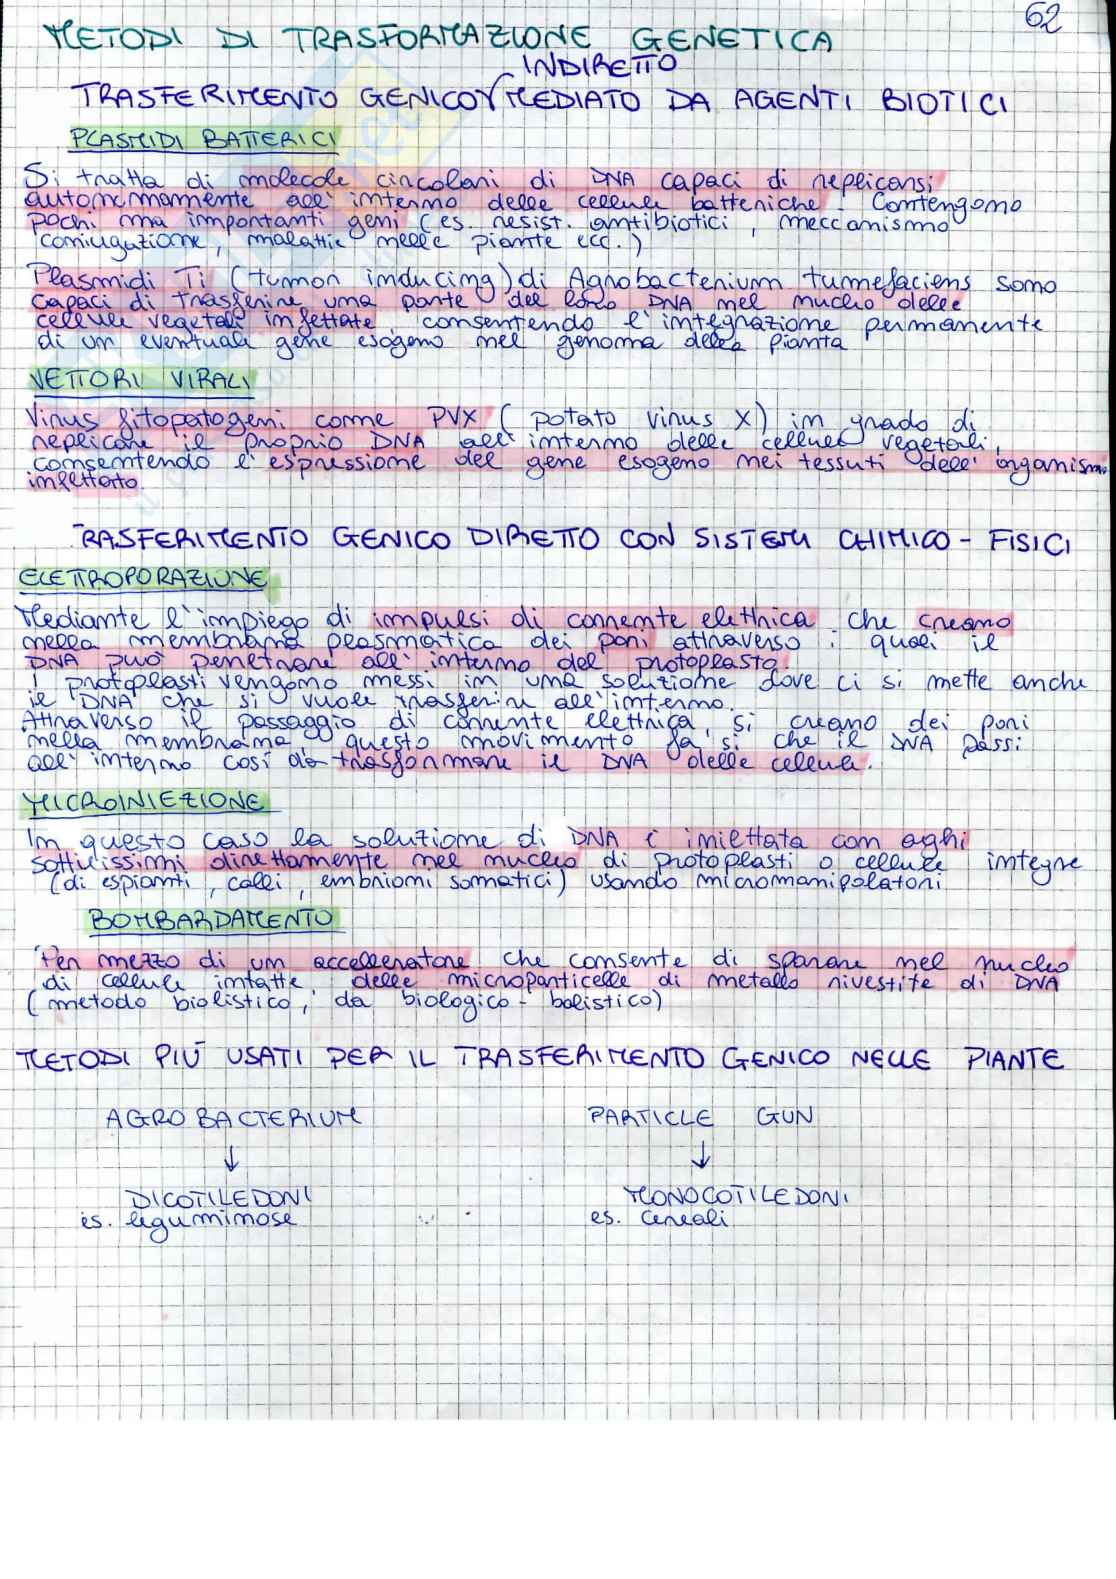 62
METODI DI TRASFORMAZIONE GENETICA
INDIRETTO
TRASFERIMENTO GENICO MEDIATO DA AGENTI BIOTICI
PLASMIDI BATTERICI
Si tratta di molecole circolari di DNA capaci di replicarsi
autonomamente all'interno delle cellule batteriche. Contengono
pochi ma importanti geni (es. resist. antibiotici, meccanismo
coniugazione, malattie nelle piante ecc.)
Plasmidi Ti (tumor inducing) di Agrobacterium tumefaciens sono
capaci di trasferire una parte del loro DNA nel nucleo delle
cellule vegetali infettate, consentendo l'integrazione permanente
di un eventuale gene esogeno nel genoma della pianta
VETTORI VIRALI
Virus fitopatogeni come PVX (potato virus X) in grado di
replicare il proprio DNA all'interno delle cellule vegetali,
consentendo l'espressione del gene esogeno nei tessuti dell'organismo
infettato.
TRASFERIMENTO GENICO DIRETTO CON SISTEMI CHIMICO-FISICI
ELETTROPORAZIONE
Mediante l'impiego di impulsi di corrente elettrica che creano
nella membrana plasmatica dei pori attraverso i quali il
DNA può penetrare all'interno del protoplasto.
I protoplasti vengono messi in una soluzione dove ci si mette anche
il DNA che si vuole trasferire all'interno.
Attraverso il passaggio di corrente elettrica, si creano dei pori
nella membrana, questo movimento fa si che il DNA passi
all'interno così da trasformare il DNA delle cellule.
MICROINIEZIONE
In questo caso la soluzione di DNA è iniettata con aghi
sottilissimi direttamente nel nucleo di protoplasti o cellule integre
(di espianti, calli, embrioni somatici) usando micromanipolatori
BOMBARDAMENTO
Per mezzo di un acceleratore che consente di sparare nel nucleo
di cellule intatte, delle microparticelle di metallo rivestite di DNA
(metodo biolistico, da biologico-balistico)
METODI PIÙ USATI PER IL TRASFERIMENTO GENICO NELLE PIANTE
AGROBACTERIUM PARTICLE GUN
↓ ↓
DICOTILEDONI MONOCOTILEDONI
es. leguminose es. cereali